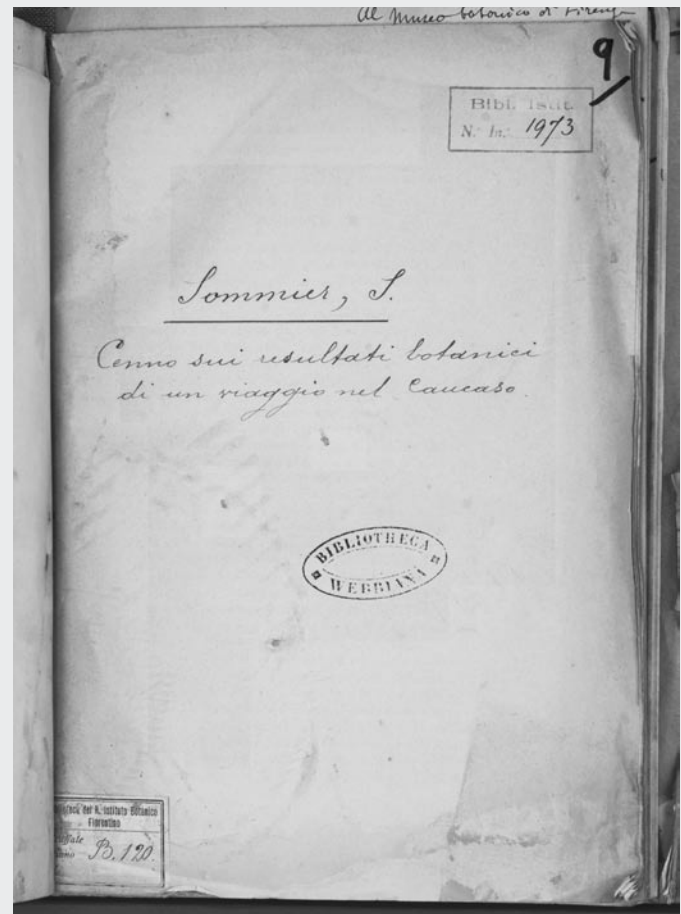 Al Museo botanico di Firenze
9
Bibl. Istit.
N.° In.: 1973
Sommier, S.
Cenno sui resultati botanici
di un viaggio nel Caucaso.
BIBLIOTHECA
WEBBIANA
del R. Istituto Botanico
Fiorentino
B. 120.